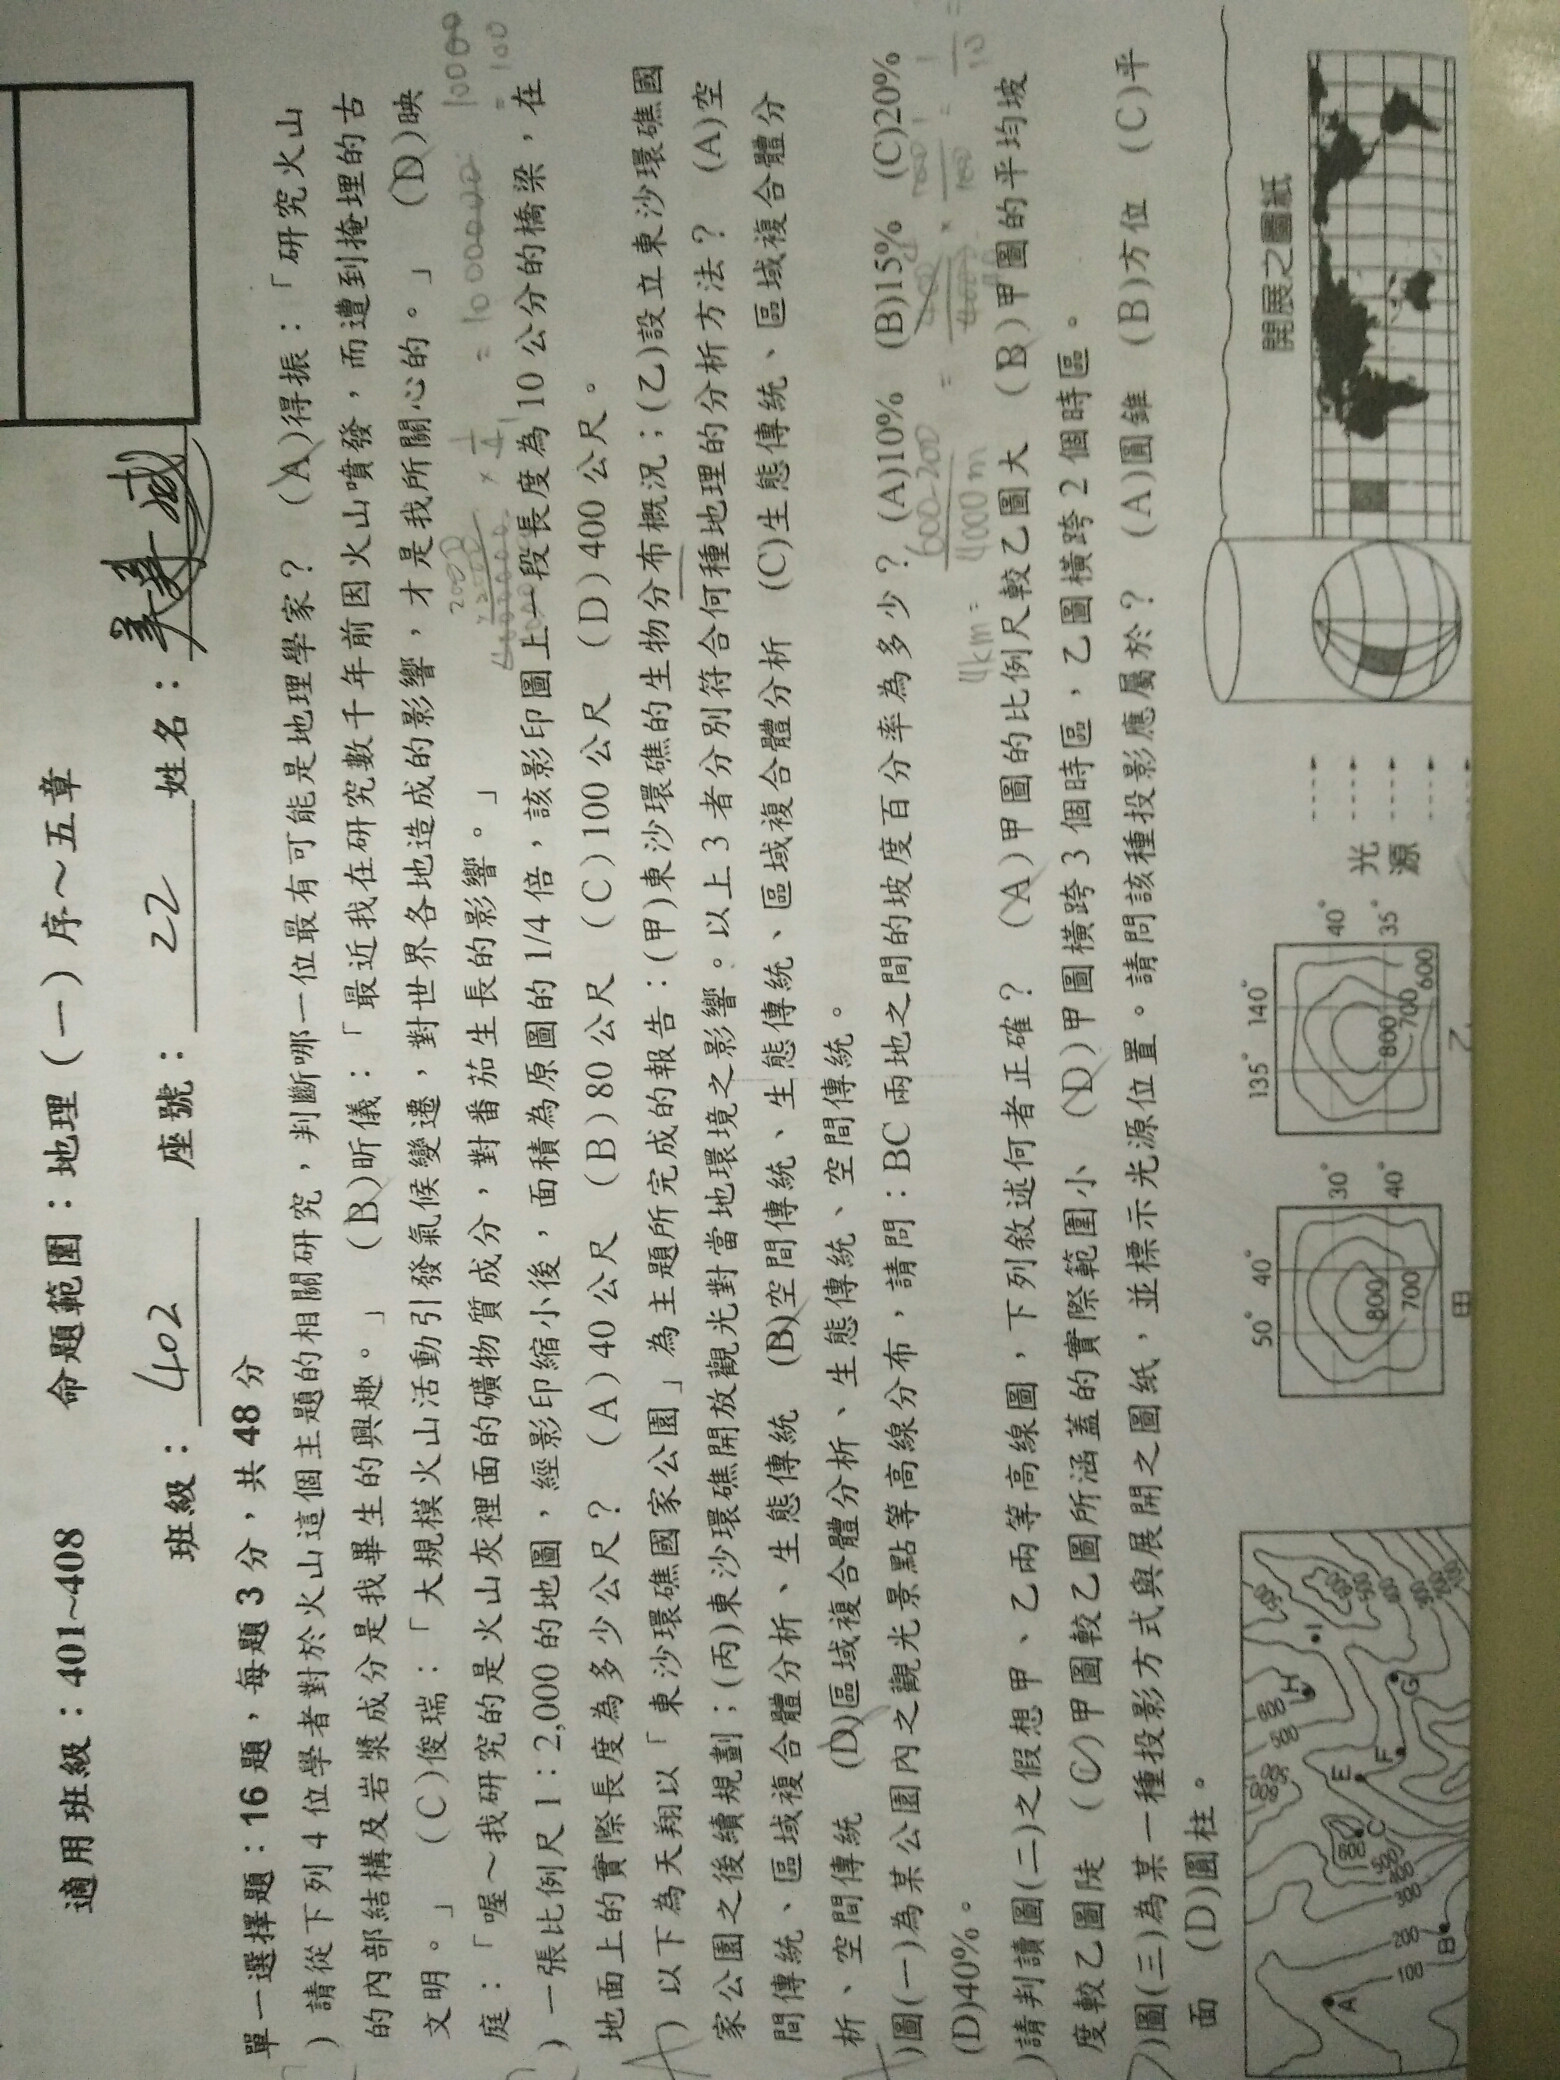 適用班級：401~408　　命題範圍：地理（一）序～五章
班級：402　座號：22　姓名：
單一選擇題：16 題，每題 3 分，共 48 分
) 請從下列 4 位學者對於火山這個主題的相關研究，判斷哪一位最有可能是地理學家？　(A)得振：「研究火山
的內部結構及岩漿成分是我畢生的興趣。」　(B)昕儀：「最近我在研究數千年前因火山噴發，而遭到掩埋的古
文明。」　(C)俊瑞：「大規模火山活動引發氣候變遷，對世界各地造成的影響，才是我所關心的。」　(D)映
庭：「喔～我研究的是火山灰裡面的礦物質成分，對番茄生長的影響。」
) 一張比例尺 1：2,000 的地圖，經影印縮小後，面積為原圖的 1/4 倍，該影印圖上一段長度為 10 公分的橋梁，在
地面上的實際長度為多少公尺？　(A) 40 公尺　(B) 80 公尺　(C) 100 公尺　(D) 400 公尺。
) 以下為天翔以「東沙環礁國家公園」為主題所完成的報告：(甲)東沙環礁的生物分布概況；(乙)設立東沙環礁國
家公園之後續規劃；(丙)東沙環礁開放觀光對當地環境之影響。以上 3 者分別符合何種地理的分析方法？　(A)空
間傳統、區域複合體分析、生態傳統　(B)空間傳統、生態傳統、區域複合體分析　(C)生態傳統、區域複合體分
析、空間傳統　(D)區域複合體分析、生態傳統、空間傳統。
)圖(一)為某公園內之觀光景點等高線分布，請問：BC 兩地之間的坡度百分率為多少？　(A)10%　(B)15%　(C)20%
(D)40%。
600-200
4km=
4000 m
)請判讀圖(二)之假想甲、乙兩等高線圖，下列敘述何者正確？　(A)甲圖的比例尺較乙圖大　(B)甲圖的平均坡
度較乙圖陡　(C)甲圖較乙圖所涵蓋的實際範圍小　(D)甲圖橫跨 3 個時區，乙圖橫跨 2 個時區。
)圖(三)為某一種投影方式與展開之圖紙，並標示光源位置。請問該種投影應屬於？　(A)圓錐　(B)方位　(C)平
面　(D)圓柱。
A
B
C
E
F
G
H
I
50° 40°
30°
40°
800
700
甲
135° 140°
40°
35°
800
700
600
乙
光
源
開展之圖紙